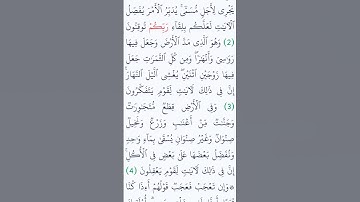 يَجْرِى لِأَجَلٍ مُّسَمًّى يُدَبِّرُ ٱلْأَمْرَ يُفَصِّلُ
ٱلْءَايَٰتِ لَعَلَّكُم بِلِقَآءِ رَبِّكُمْ تُوقِنُونَ
(2) وَهُوَ ٱلَّذِى مَدَّ ٱلْأَرْضَ وَجَعَلَ فِيهَا
رَوَٰسِىَ وَأَنْهَٰرًا وَمِن كُلِّ ٱلثَّمَرَٰتِ جَعَلَ
فِيهَا زَوْجَيْنِ ٱثْنَيْنِ يُغْشِى ٱلَّيْلَ ٱلنَّهَارَ
إِنَّ فِى ذَٰلِكَ لَءَايَٰتٍ لِّقَوْمٍ يَتَفَكَّرُونَ
(3) وَفِى ٱلْأَرْضِ قِطَعٌ مُّتَجَٰوِرَٰتٌ
وَجَنَّٰتٌ مِّنْ أَعْنَٰبٍ وَزَرْعٌ وَنَخِيلٌ
صِنْوَانٌ وَغَيْرُ صِنْوَانٍ يُسْقَىٰ بِمَآءٍ وَٰحِدٍ
وَنُفَضِّلُ بَعْضَهَا عَلَىٰ بَعْضٍ فِى ٱلْأُكُلِ
إِنَّ فِى ذَٰلِكَ لَءَايَٰتٍ لِّقَوْمٍ يَعْقِلُونَ (4)
۞وَإِن تَعْجَبْ فَعَجَبٌ قَوْلُهُمْ أَءِذَا كُنَّا